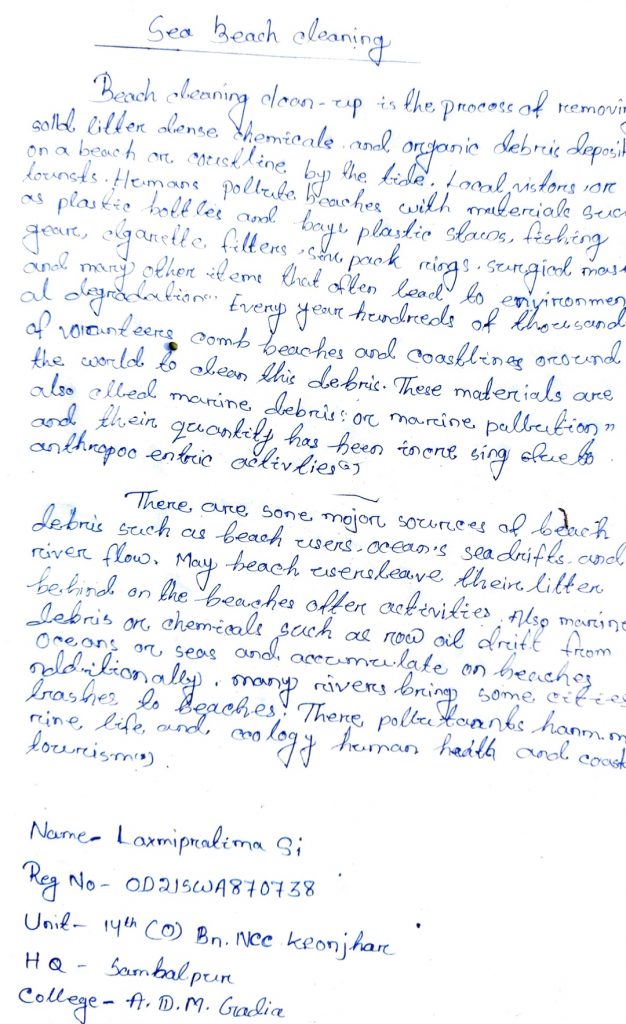 Sea Beach cleaning
Beach cleaning clean-up is the process of removin
solid litter dense chemicals and organic debris deposit
on a beach or coustline by the tide. Local vistors or
tourists. Humans pollute beaches with materials suc
as plastic bottles and bags plastic staws, fishing
gear, cigarette filters, six pack rings. surgical mas
and many other items that often lead to environmen
al degradation" Every year hundreds of thousand
of volunteers comb beaches and coastlines oround
the world to clean this debris. These materials are
also clleal marine debris: or marine pallution"
and their quantity has been incre sing due to
anthropoc entric activties
There are some major sources of beach
debris such as beach users, ocean's sea drifts, and
river flow. May beach users leave their litter
behind on the beaches after activities. Also marine
debris or chemicals such as row oil drift from
oceans or seas and accumulate on beaches
additionally, many rivers bring some cities
trashes to beaches. There pollutants harm m
rine, life, and coology human health and coast
tourism
Name- Laxmipratima Si
Reg No- OD21SWA870738
Unit- 14th (O) Bn. NCC Keonjhar
HQ - Sambalpur
College- A. D. M. Gadia